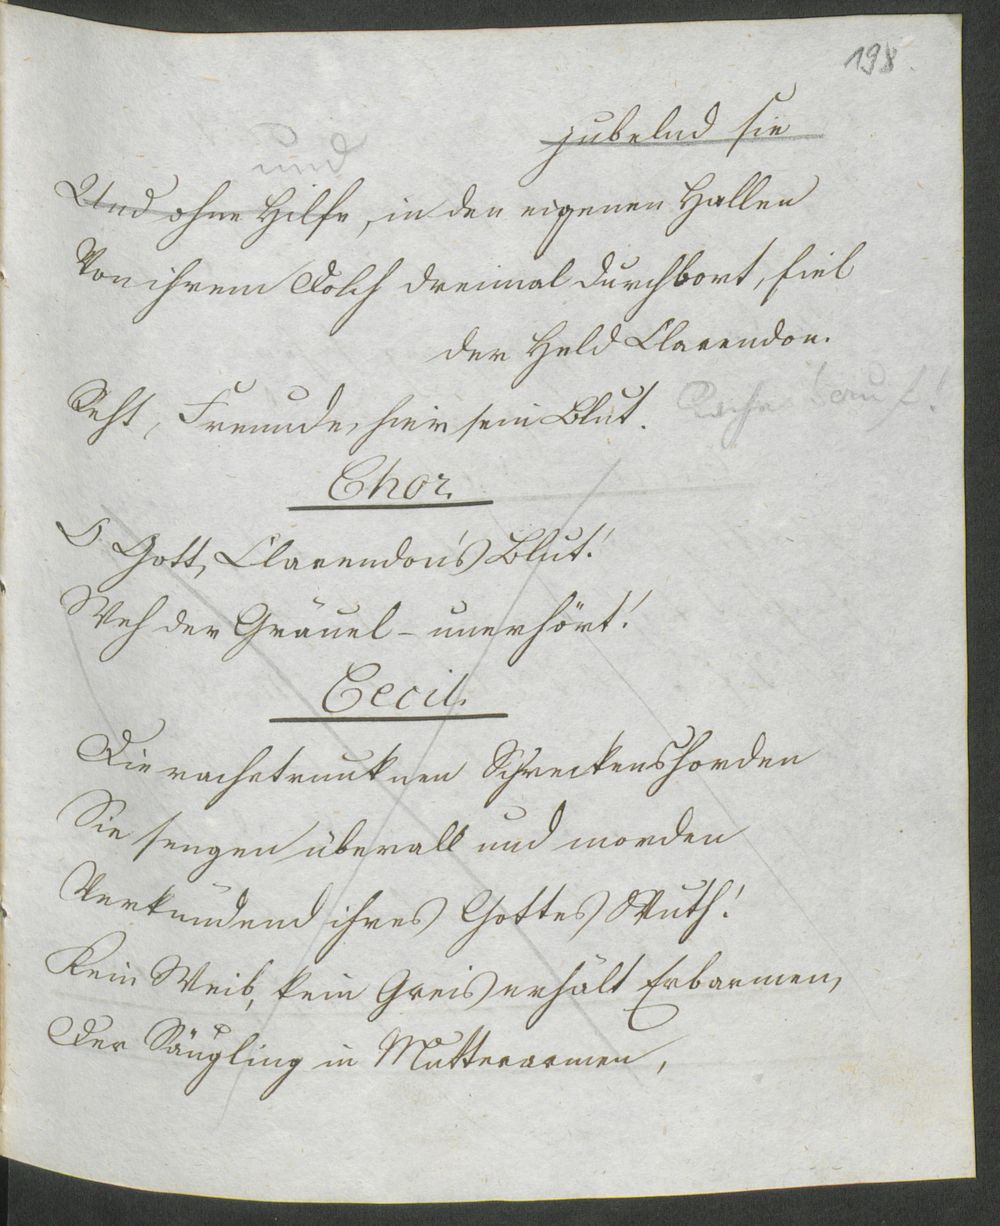 198
jubelnd sie
und
Und ohne Hilfe, in den eigenen Hallen
Von ihrem Dolch dreimal durchbort, fiel
der Held Clarendon.
Seht, Freunde, hier sein Blut.
Chor.
O Gott, Clarendon's Blut!
Weh der Gräuel – unerhört!
Cecil.
Die rachetrunknen Schreckenshorden
Sie sengen überall und morden
Verkündend ihres Gottes Wuth!
Kein Weib, kein Greis erhält Erbarmen,
Der Säugling in Mutterarmen,